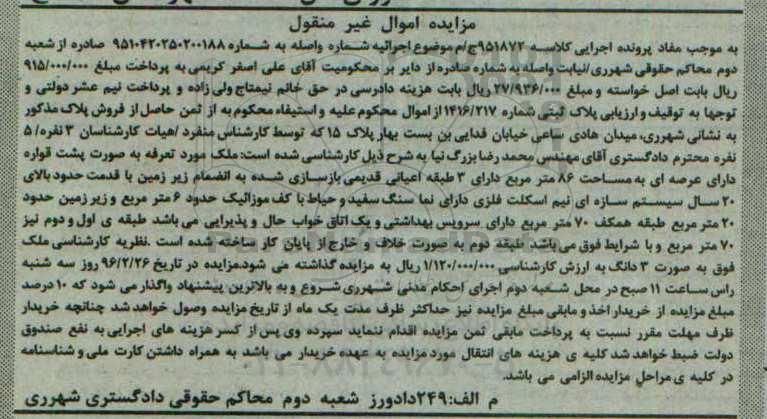 مزایده اموال غیر منقول
به موجب مفاد پرونده اجرایی کلاسه ۹۵۱۸۷۲ج/م موضوع اجرائیه شماره واصله به شماره ۹۵۱۰۴۲۰۲۵۰۲۰۰۱۸۸ صادره از شعبه
دوم محاکم حقوقی شهرری/نیابت واصله به شماره صادره از دایر بر محکومیت آقای علی اصغر کریمی به پرداخت مبلغ ۹۱۵/۰۰۰/۰۰۰
ریال بابت اصل خواسته و مبلغ ۲۷/۹۳۶/۰۰۰ ریال بابت هزینه دادرسی در حق خانم نیمتاج ولی زاده و پرداخت نیم عشر دولتی و
توجها به توقیف و ارزیابی پلاک ثبتی شماره ۱۴۱۶/۲۱۷ از اموال محکوم علیه و استیفاء محکوم به از ثمن حاصل از فروش پلاک مذکور
به نشانی شهرری، میدان هادی ساعی خیابان فدایی بن بست بهار پلاک ۱۵ که توسط کارشناس منفرد /هیات کارشناسان ۳ نفره/ ۵
نفره محترم دادگستری آقای مهندس محمد رضا بزرگ نیا به شرح ذیل کارشناسی شده است: ملک مورد تعرفه به صورت پشت قواره
دارای عرصه ای به مساحت ۸۶ متر مربع دارای ۳ طبقه اعیانی قدیمی بازسازی شده به انضمام زیر زمین با قدمت حدود بالای
۲۰ سال سیستم سازه ای نیم اسکلت فلزی دارای نما سنگ سفید و حیاط با کف موزائیک حدود ۶ متر مربع و زیر زمین حدود
۲۰ متر مربع طبقه همکف ۷۰ متر مربع دارای سرویس بهداشتی و یک اتاق خواب حال و پذیرایی می باشد طبقه ی اول و دوم نیز
۷۰ متر مربع و با شرایط فوق می باشد طبقه دوم به صورت خلاف و خارج از پایان کار ساخته شده است .نظریه کارشناسی ملک
فوق به صورت ۳ دانگ به ارزش کارشناسی ۱/۱۲۰/۰۰۰/۰۰۰ ریال به مزایده گذاشته می شود.مزایده در تاریخ ۹۶/۲/۲۶ روز سه شنبه
راس ساعت ۱۱ صبح در محل شعبه دوم اجرای احکام مدنی شهرری شروع و به بالاترین پیشنهاد واگذار می شود که ۱۰ درصد
مبلغ مزایده از خریدار اخذ و مابقی مبلغ مزایده نیز حداکثر ظرف مدت یک ماه از تاریخ مزایده وصول خواهد شد چنانچه خریدار
ظرف مهلت مقرر نسبت به پرداخت مابقی ثمن مزایده اقدام ننماید سپرده وی پس از کسر هزینه های اجرایی به نفع صندوق
دولت ضبط خواهد شد کلیه ی هزینه های انتقال مورد مزایده به عهده خریدار می باشد به همراه داشتن کارت ملی و شناسنامه
در کلیه ی مراحل مزایده الزامی می باشد.
م الف:۲۴۹ دادورز شعبه دوم محاکم حقوقی دادگستری شهرری